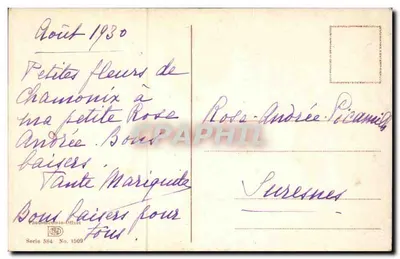 Août 1930
Petites fleurs de
Chamonix à
ma petite Rose
Andrée. Bons
baisers.
Tante Marigude
Bons baisers pour
tous.
Rose-Andrée
Suresnes
CPAPHIL
Serie 384 No. 1009